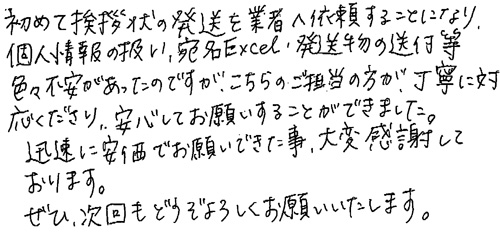 初めて挨拶状の発送を業者へ依頼することになり、
個人情報の扱い、宛名Excel・発送物の送付等
色々不安があったのですが、こちらのご担当の方が、丁寧に対
応くださり、安心してお願いすることができました。
迅速に安価でお願いできた事、大変感謝して
おります。
ぜひ、次回もどうぞよろしくお願いいたします。